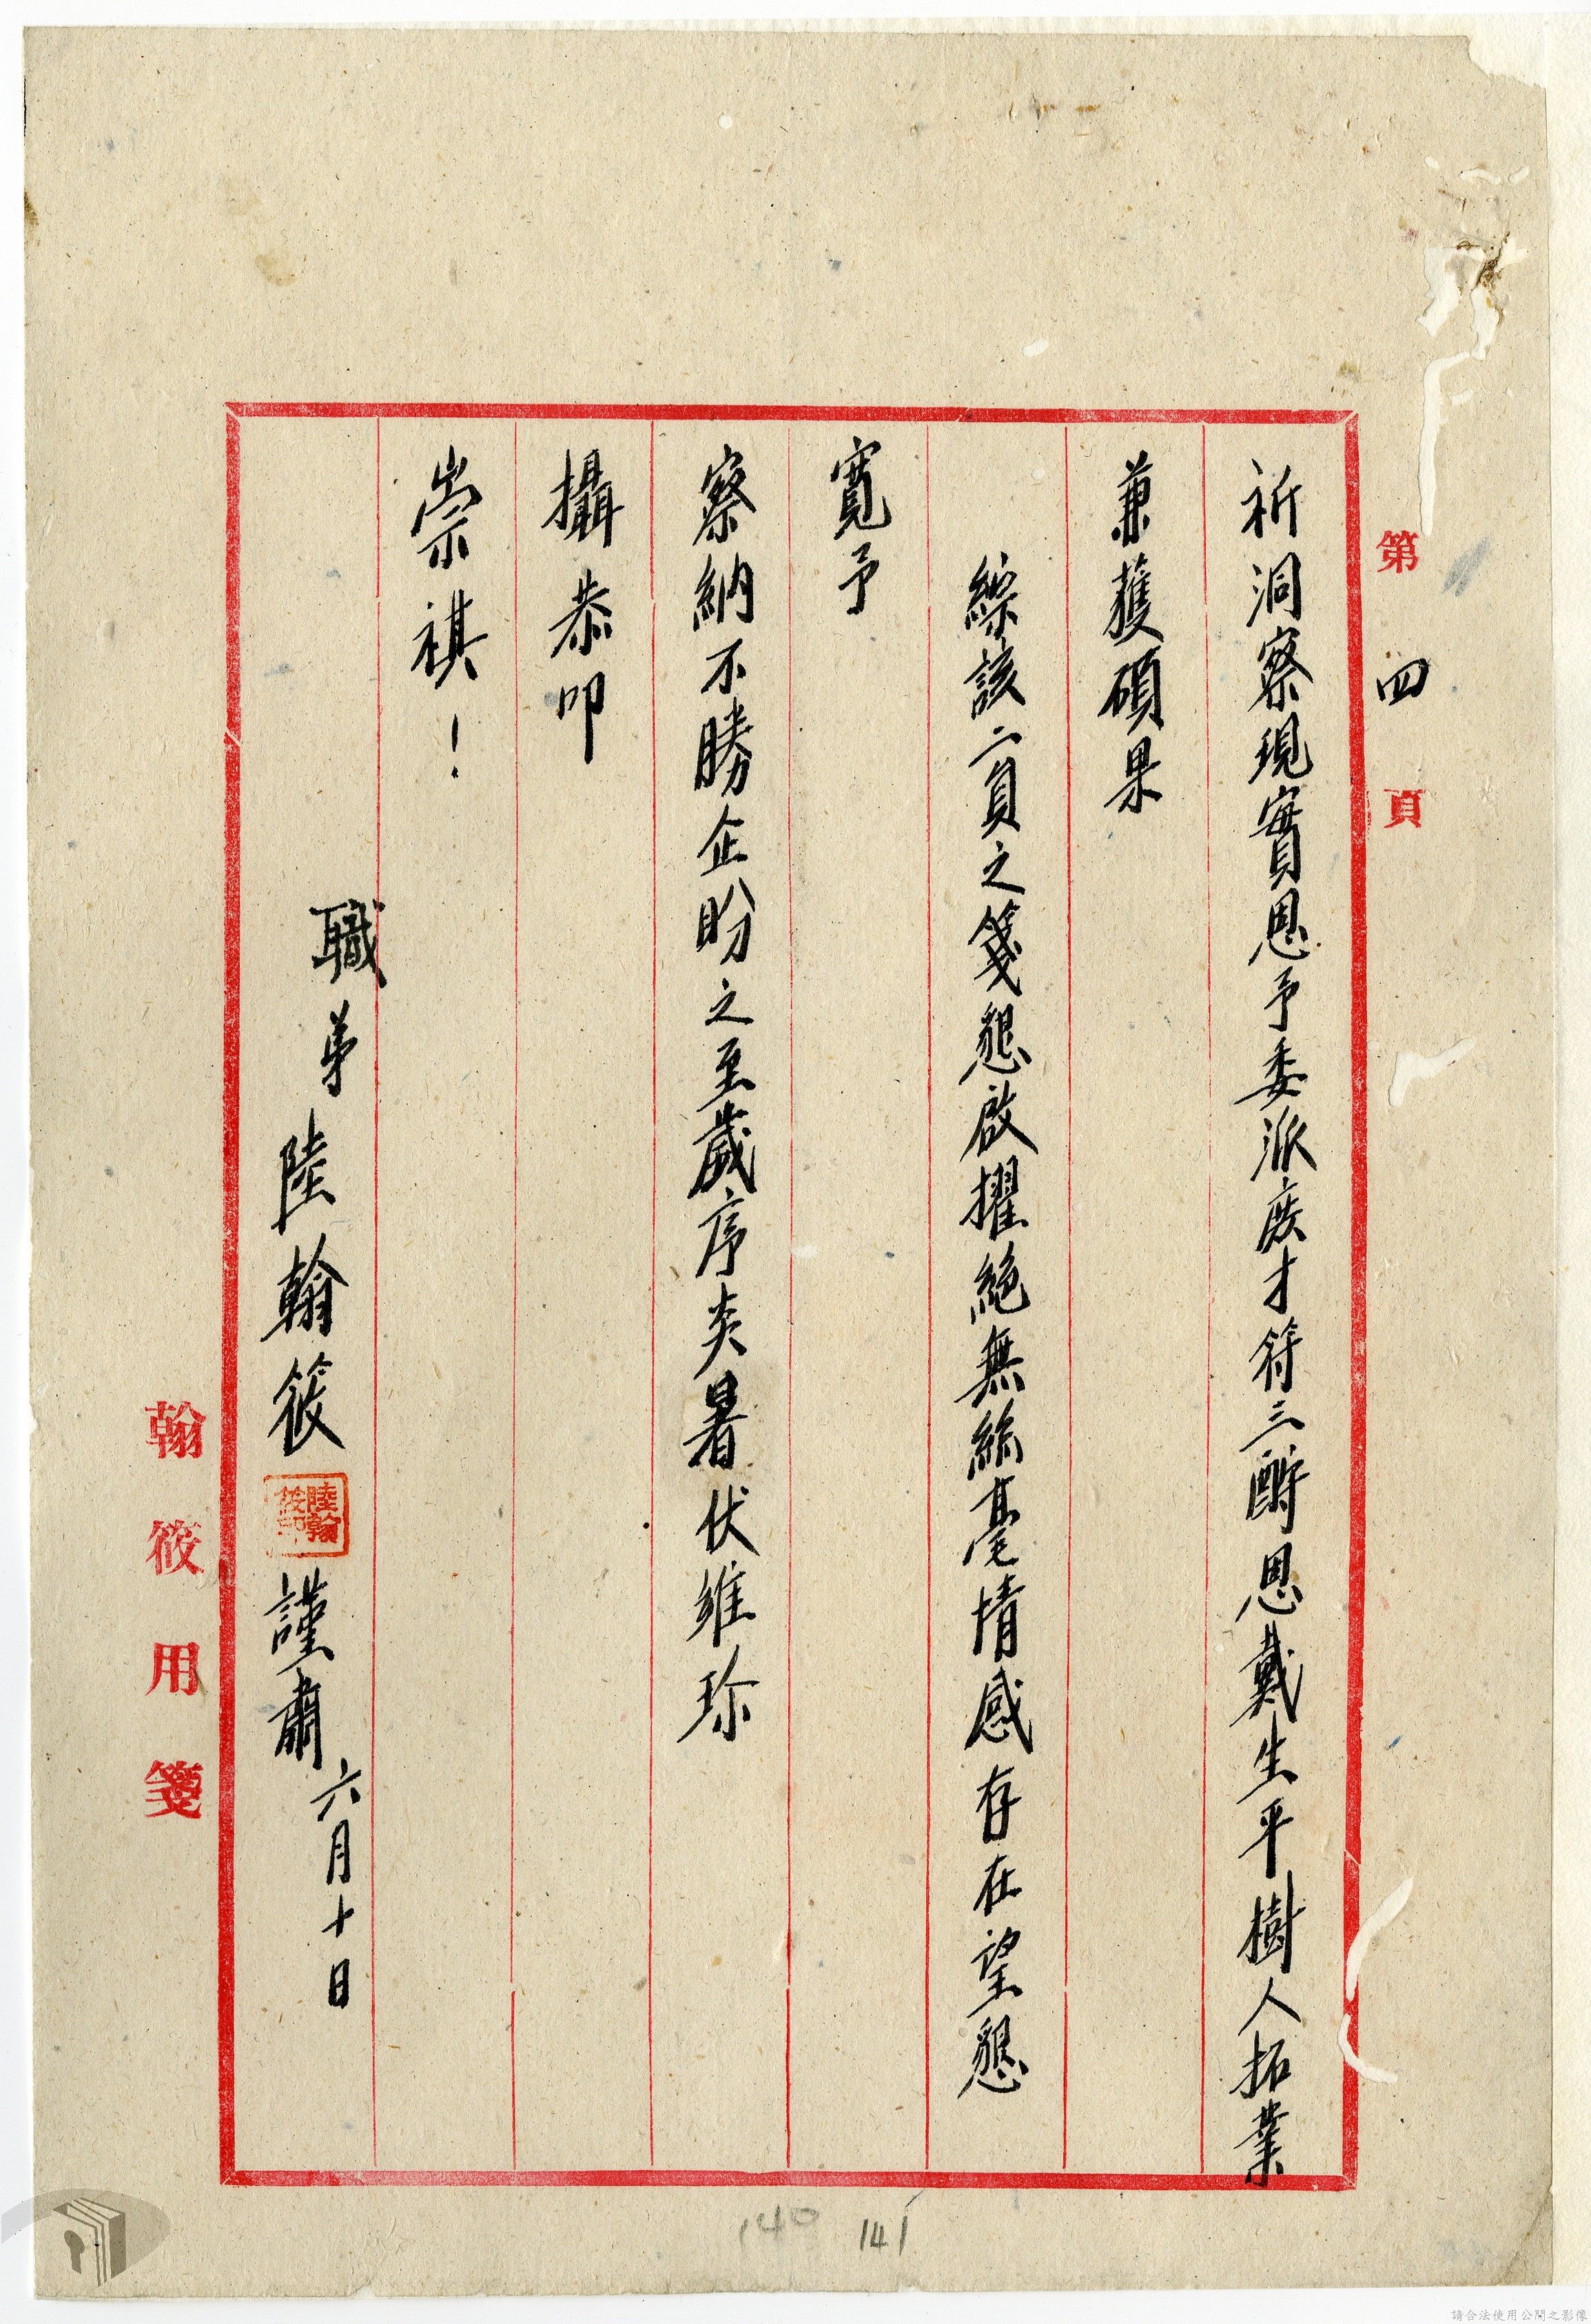 第四頁
祈洞察現實恩予委派庶才符三酹恩戴生平樹人拓業
兼獲碩果
綜該二員之箋懇啟擢絕無絲毫情感存在望懇
寬予
察納不勝企盼之至歲序炎暑伏維珍
攝恭叩
崇祺！
職弟陸翰筱謹肅六月十日
陸翰筱印
翰筱用箋
140
141
請合法使用公開之影像